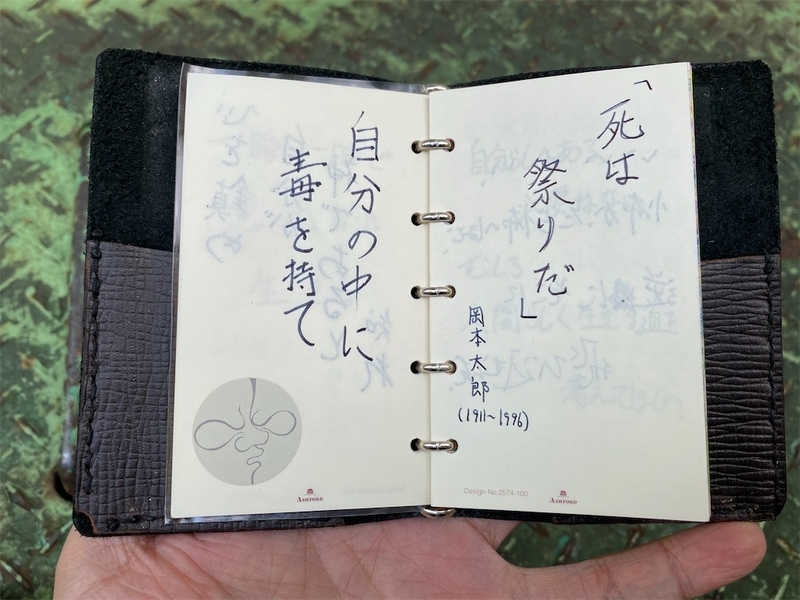 「死は
祭りだ」
岡本太郎
(1911~1996)
Design:No.2574-100
ASHFORD
自分の中に
毒を持て
ASHFORD